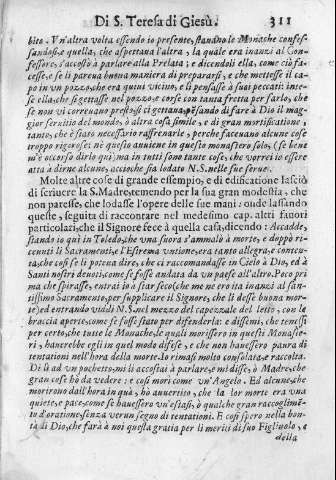 Di S. Teresa di Giesù. 311
bito. Vn'altra volta essendo io presente, stando le Monache confes-
sandosi, e quella, che aspettana l'altra, la quale era inanzi al Con-
fessore, s'accostò à parlare alla Prelata; e dicendoli ella, come ciò fa-
cesse, e se li parea buona maniera di prepararsi, e che mettesse il ca-
po in vn pozzo, che era quiui vicino, e li pensasse à suoi peccati inte-
se ella, che si gettasse nel pozzo, e corse con tanta fretta per farlo, che
se non vi correuano presto, si ci gettana, pesando di fare à Dio il mag-
gior seruitio del mondo, & altre cose simile, e di gran mortificatione,
tanto, che è stato necessario raffrenarle, perche faceuano alcune cose
troppo rigorose; nè questo auuiene in questo monastero solo, (se bene
m'è occorso dirlo quì) ma in tutti sono tante cose, che vorrei io essere
atta à dirne alcune, acciòche sia lodato N. S. nelle sue serue.
Molte altre cose di grande essempio, e di edificatione lasciò
di scriuere la S. Madre, temendo per la sua gran modestia, che
non paresse, che lodasse l'opere delle sue mani; onde lassando
queste, seguita di raccontare nel medesimo cap. altri fauori
particolari, che il Signore fece à quella casa, dicendo: Accadde,
stando io quì in Toledo, che vna suora s'ammalò à morte, e doppò ri-
ceuuti li Sacramenti, e l'Estrema vntione, era tanto allegra, e conten-
ta, che così se le potena dire, che ci raccomandasse in Cielo à Dio, ed à
Santi nostri deuoti, come se fosse andata da vn paese all'altro. Poco pri
ma che spirasse, entrai io à star seco (che me ne ero ita inanzi al San-
tissimo Sacramento, per supplicare il Signore, che li desse buona mor-
te) ed entrando viddi N. S. nel mezzo del capezzale del letto, con le
braccia aperte, come se fosse stato per difenderla: e dissemi, che tenessi
per certo, che tutte le Monache, le quali morissero in questi Monaste-
ri, hauerebbe egli in quel modo difese, e che non hauessero paura di
tentationi nell'hora della morte. Io rimasi molto consolata, e raccolta.
Di lì ad vn pochetto, mi li accostai à parlare, e mi disse, ò Madre, che
gran cose hò da vedere: e così morì come vn'Angelo. Ed alcune, che
morirono dall'hora in quà, hò auuertito, che la lor morte era vna
quiete, e pace, come se hauessero vn'estasi, ò qualche gran raccoglimē-
to d'oratione, senza verun segno di tentationi. E così spero nella bon-
tà di Dio, che farà à noi questa gratia per li meriti di suo Figliuolo, e
della